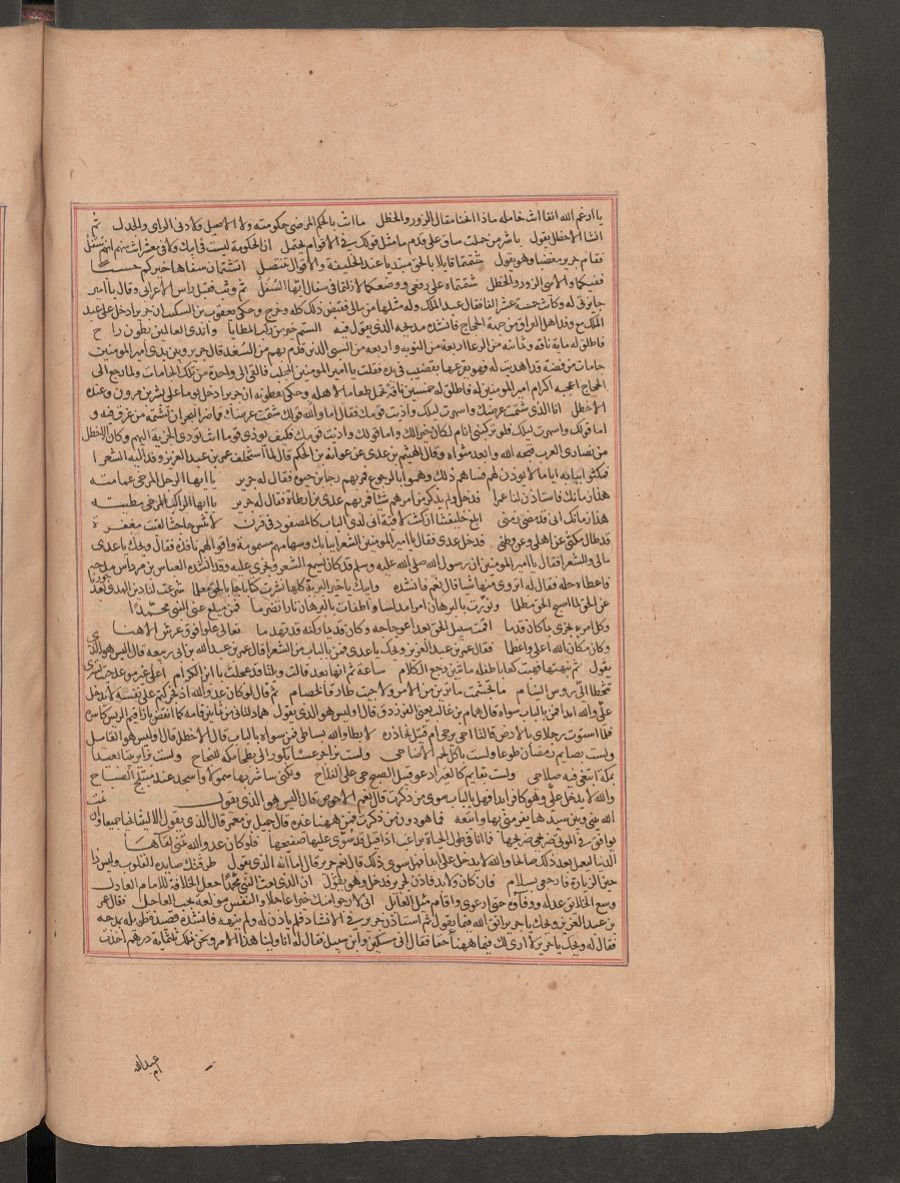 يا ارغم الله انفا انت حامله يا ذا الخنا ومقال الزور والخطل ما انت بالحكم الترضى حكومته ولا الاصيل ولا ذى الراى والجدل ثم
انشا الاخطل يقول يا شر من حملت ساق على قدم ما مثل قولك فى الاقوام يحتمل ان الحكومة ليست فى ابيك ولا فى معشر انت منهم انهم سفل
فقام جرير مغضبا وهو يقول شتمتما قايلا بالحق مبتديا عند الخليفة والاقوال تنتضل اتشتمان سفاها خيركم حسبا
ففيكما والاهى الزور والخطل شتمتماه على رفعى ووضعكما لا زلتما فى سفال ايها السفل ثم وثب فقبل راس الاعرابى وقال يا امير
جايزتى له وكانت خمسة عشر الفا فقال عبد الملك وله مثلها من مالى فقبض ذلك كله وخرج وحكى يعقوب بن السكيت ان جريرا دخل على عبد
الملك مع وفد اهل العراق من جهة الحجاج فانشده مدحه الذى يقول فيه الستم خير من ركب المطايا واندى العالمين بطون راح
فاطلق له ماية ناقة وثمانية من الرعا اربعة من النوبه واربعه من السبى الذين قدم بهم من السغد قال جرير وبين يدى امير المومنين
جامات من فضة قد اهديت له فهو يقرعها بقضيب فى يده فقلت يا امير المومنين المحلب فالقى الى واحدة من تلك الجامات ولما رجع الى
الحجاج اعجبه اكرام امير المومنين له فاطلق له خمسين ناقة تحمل طعاما لاهله وحكى نفطويه ان جريرا دخل يوما على بشر بن مروان وعنده
الاخطل انا الذى شتمت عرضك واسهرت ليلك واذيت قومك فقال اما والله قولك شتمت عرضك فما ضر البحر ان يشتمه من غرق فيه و
اما قولك واسهرت ليلك فلو تركتنى انام لكان خيرا لك واما قولك واذيت قومك فكيف توذى قوما انت تودى الجزية اليهم وكان الاخطل
من نصارى العرب قبحه الله وابعد مثواه وقال الهيثم بن عدى عن عوانة بن الحكم قال لما استخلف عمر بن عبد العزيز وفد اليه الشعرا
فمكثوا ببابه اياما لا يوذن لهم فساهم ذلك وهموا بالرجوع فمر بهم رجا بن حيوه فقال له جرير يا ايها الرجل المرخى عمامته
هذا زمانك فاستاذن لنا عمرا فدخل ولم يذكر من امرهم شيا فمر بهم عدى بن ارطاة فقال له جرير يا ايها الراكب المرخى مطيته
هذا زمانك انى قد مضى زمنى ابلغ خليفتنا ان كنت لاقيه انى لدى الباب كالمصفود فى قرن لا تنس حاجتنا لقيت مغفرة
قد طال مكثى عن اهلى وعن وطنى فدخل عدى فقال يا امير المومنين الشعرا ببابك وسهامهم مسمومة واقوالهم نافذه فقال ويحك يا عدى
مالى والشعرا فقال يا امير المومنين ان رسول الله صلى الله عليه وسلم قد كان يسمع الشعر ويجزى عليه وقد انشده العباس بن مرداس مدحه
فاعطاه حلة فقال له اتروى منها شيا قال نعم فانشده رايتك يا خير البرية كلها نشرت كتابا جا بالحق معلما شرعت لنا دين الهدى بعد
عن الحق لما اصبح الحق مظلما ونورت بالبرهان امرا مدلسا واطفات بالبرهان نارا تضرما فمن مبلغ عنى النبى محمدا
وكل امرء يجزى بما كان قدما اقمت سبيل الحق بعد اعوجاجه وكان قديما ركنه قد تهدما تعالى علوا فوق عرش الاهنا
وكان مكان الله اعلى واعظما فقال عمر بن عبد العزيز ويحك يا عدى فمن بالباب من الشعرا قال عمر بن عبد الله بن ابى ربيعه قال اليس هو الذى
يقول ثم نبهتها فهبت كعابا طفلة ما تبين رجع الكلام ساعة ثم انها بعد قالت ويلتا قد عجلت يا ابن الكرام اعلى غير موعد جيت تسرى
تتخطا الى روس النيام ما تجشمت ما ترين من الامر ولا جيت طارقا لخصام ثم قال لو كان عدو الله اذ فجر كتم على نفسه لا يدخل
على والله ابدا فمن بالباب سواه قال همام بن غالب يعنى الفرزدق قال اوليس هو الذى يقول هما دلتانى من ثمانين قامه كما انقض باز اقتم الريش كاسره
فلما استوت رجلاى بالارض قالتا احى يرجى ام قتيل نحاذره لا يطا والله بساطى فمن سواه بالباب قال الاخطل قال اوليس هو القايل
ولست بصايم رمضان طوعا ولست باكل لحم الاضاحى ولست بزاجر عنسا بكورا الى بطحا مكه للنجاح ولست بزاير بيتا بعيدا
بمكة ابتغى فيه صلاحى ولست بقايم كالعير ادعو قبيل الصبح حى على الفلاح ولكنى ساشربها شمولا واسجد عند منبلج الصباح
والله لا يدخل على وهو كافر ابدا فهل بالباب سوى من ذكرت قال نعم الاحوص قال اليس هو الذى يقول
الله بينى وبين سيدها يفر منى بها واتبعه فما هو دون من ذكرت فمن ههنا غيره قال جميل بن معمر قال الذى يقول الا ليتنا نحيا جميعا وان نمت
يوافق فى الموتى ضريحى ضريحها فما انا فى طول الحياة براغب اذا قيل قد سوى عليها صفيحها فلو كان عدو الله تمنى لقاها
الدنيا ليعمل بعد ذلك صالحا والله لا يدخل على ابدا فهل سوى ذلك قال نعم جرير قال اما انه الذى يقول طرقتك صايدة القلوب وليس ذا
حين الزيارة فارجعى بسلام فان كان ولا بد فاذن لجرير فدخل وهو يقول ان الذى بعث النبى محمدا جعل الخلافة للامام العادل
وسع الخلايق عدله ووفاوه حتى ارعوى واقام ميل المايل انى لارجو منك خيرا عاجلا والنفس مولعة بحب العاجل فقال عمر
بن عبد العزيز ويحك يا جرير اتق الله فيما يقول ثم استاذن جرير فى الانشاد فلم ياذن له ولم ينهه فانشده قصيدة طويلة يمدحه
فقال له ويحك يا جرير لا ارى لك فيما ههنا حقا فقال انى مسكين وابن سبيل فقال له انا ولينا هذا الامر ونحن نملك ثلثماية درهم اخذت
ام عبد الله